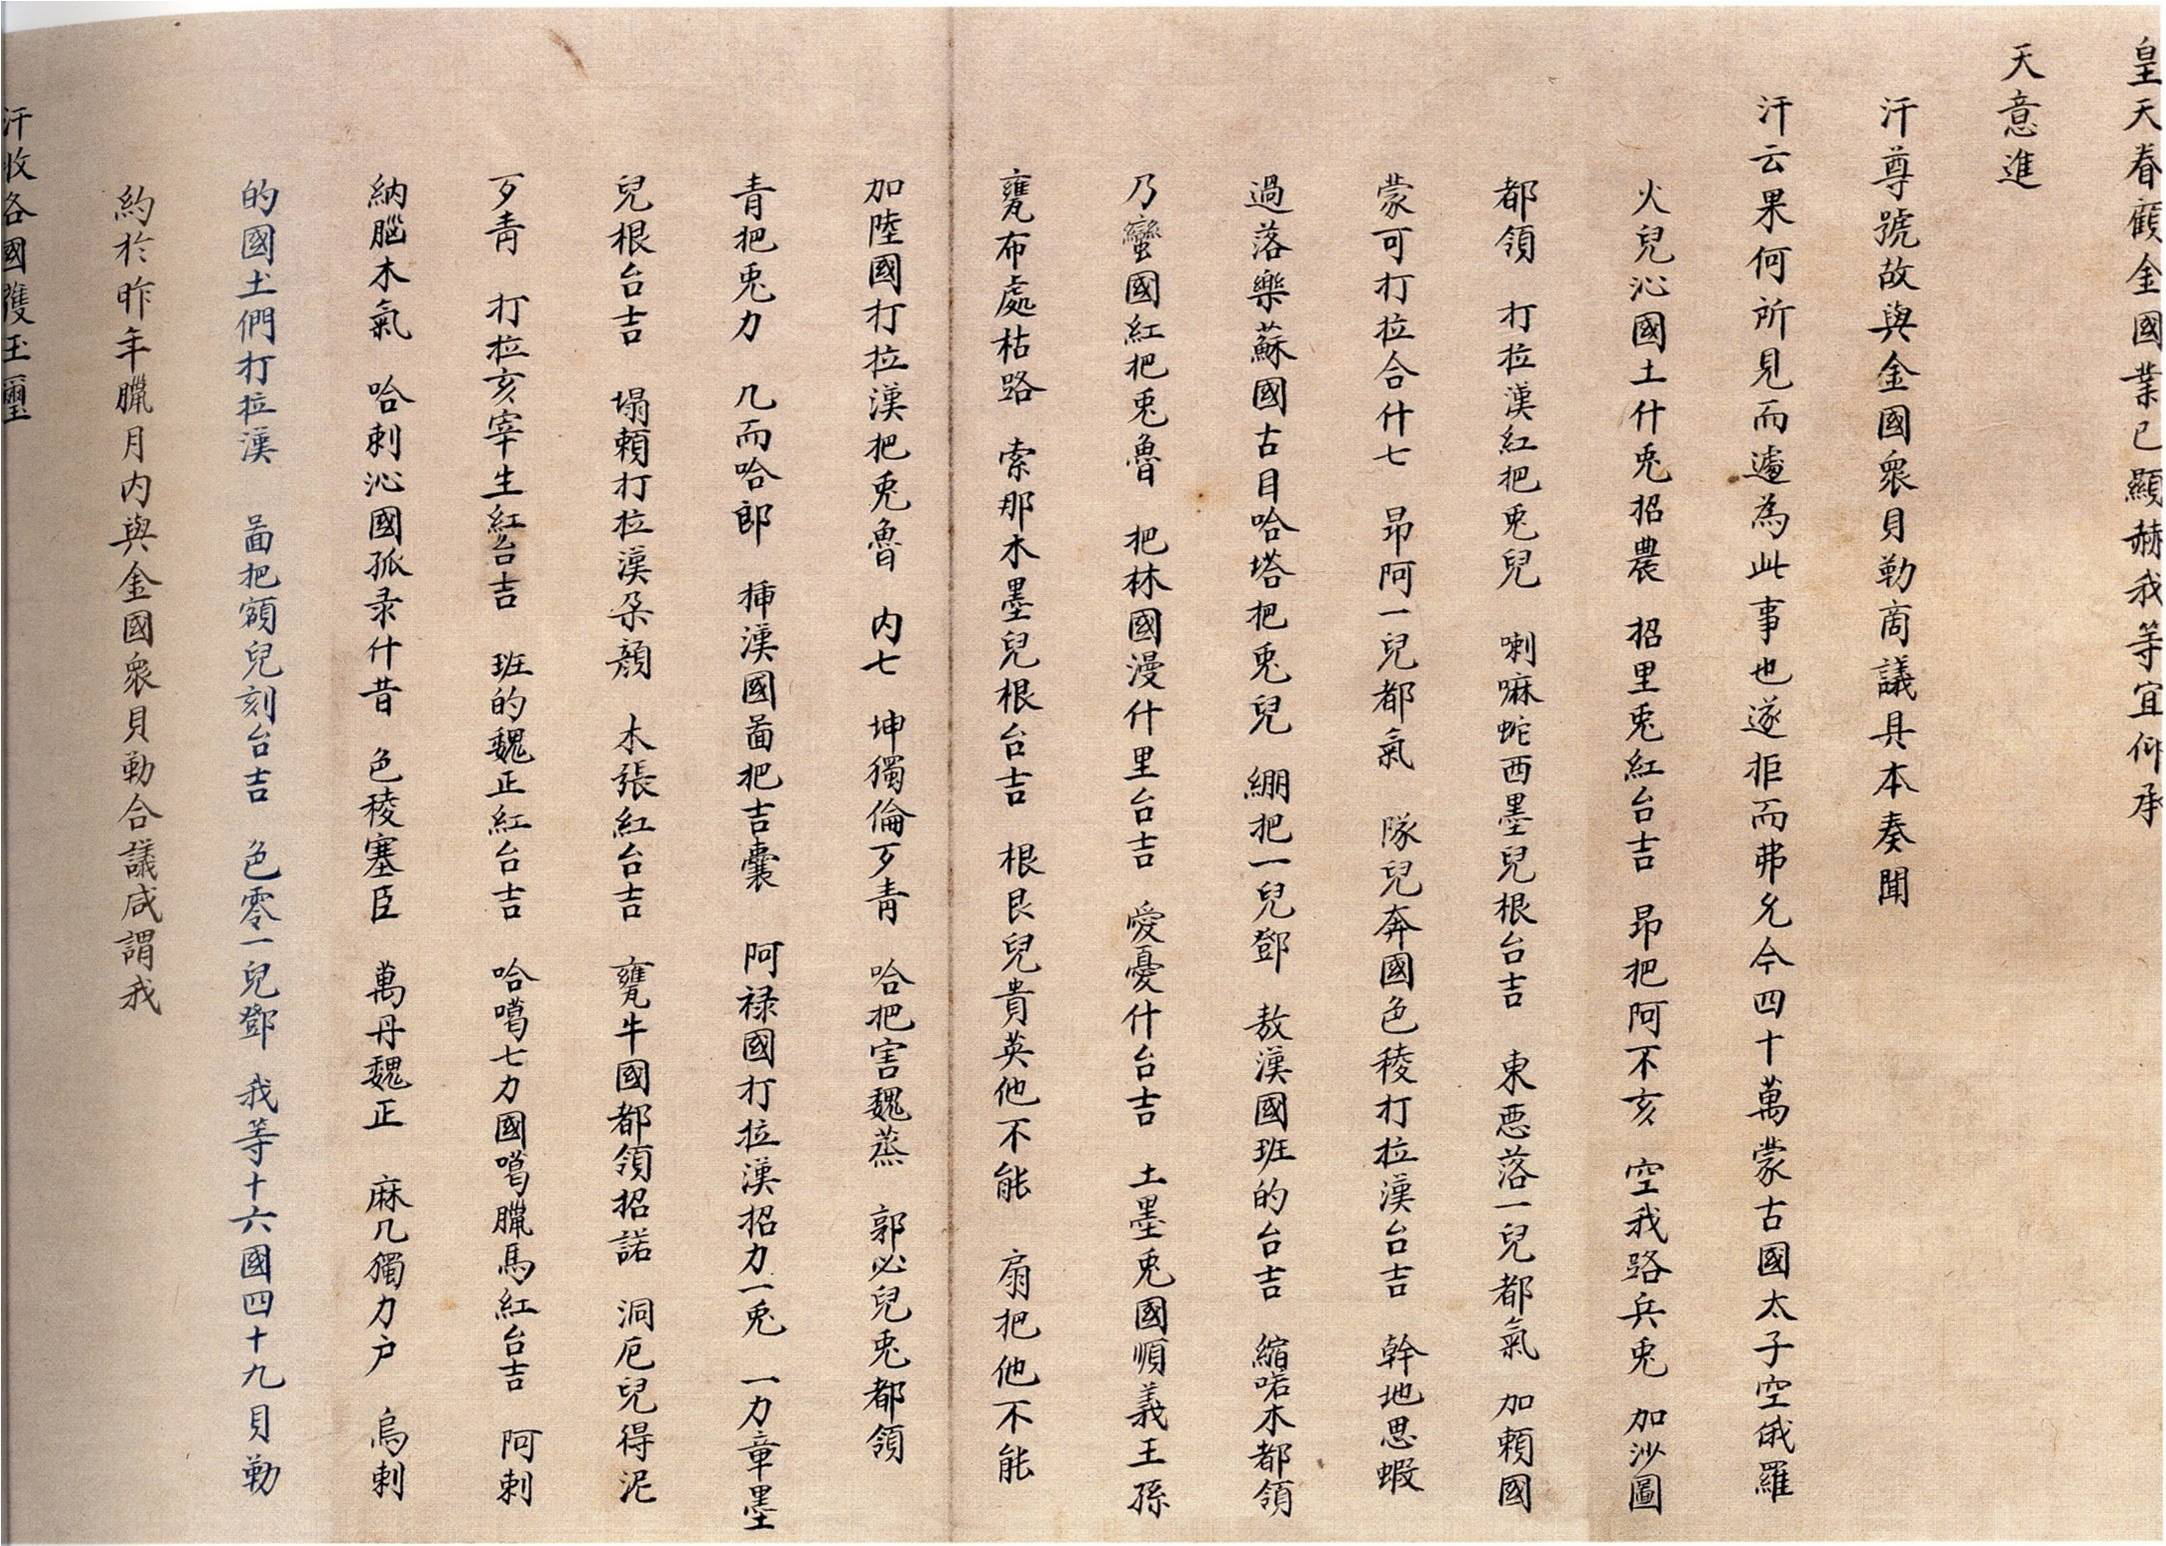 皇天眷顧金國業已顯赫我等宜仰承
天意進
汗尊號故與金國衆貝勒商議具本奏聞
汗云果何所見而遽為此事也遂拒而弗允今四十萬蒙古國太子空俄羅
火兒沁國土什兎招農 招里兎紅台吉 昻把阿不亥 空我路兵兎 加沙圖
都領 打拉漢紅把兎兒 喇嘛蛇西墨兒根台吉 東惡落一兒都氣 加賴國
蒙可打拉合什七 昻阿一兒都氣 隊兒奔國色稜打拉漢台吉 幹地思蝦
過落樂蘇國古目哈塔把兎兒 綳把一兒鄧 敖漢國班的台吉 縮喏木都領
乃蠻國紅把兎魯 把林國漫什里台吉 愛憂什台吉 土墨兎國順義王孫
甕布處枯路 索那木墨兒根台吉 根艮兒貴英他不能 扇把他不能
加陸國打拉漢把兎魯 内七 坤獨倫歹青 哈把害魏蒸 郭必兒兎都領
青把兎力 几而哈郎 揷漢國啚把吉囊 阿禄國打拉漢招力一兎 一力章墨
兒根台吉 塌賴打拉漢朶顔 木張紅台吉 甕牛國都領招諾 洞厄兒得泥
歹青 打拉亥宰生紅台吉 班的魏正紅台吉 哈噶七力國噶臘馬紅台吉 阿剌
納腦木氣 哈剌沁國孤录什昔 色稜塞臣 萬丹魏正 麻几獨力户 烏剌
的國土們打拉漢 啚把額兒刻台吉 色零一兒鄧 我等十六國四十九貝勒
約於昨年臘月内與金國衆貝勒合議咸謂我
汗收各國獲玉璽